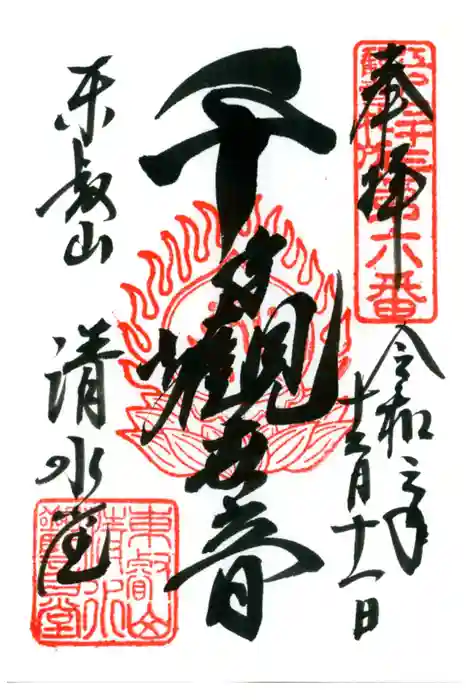 奉拝
第六番
令和三年
十二月十一日
千手觀世音
東叡山
清水堂
東叡山
清水
觀音堂